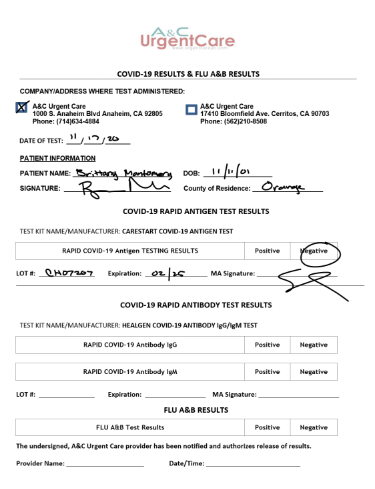 A&C
UrgentCare
COVID-19 RESULTS & FLU A&B RESULTS
COMPANY/ADDRESS WHERE TEST ADMINISTERED:
A&C Urgent Care
1000 S. Anaheim Blvd Anaheim, CA 92805
Phone: (714)634-4884
A&C Urgent Care
17410 Bloomfield Ave. Cerritos, CA 90703
Phone: (562)210-8508
DATE OF TEST: 11/17/20
PATIENT INFORMATION
PATIENT NAME: Brittany Montomery DOB: 11/11/01
SIGNATURE: County of Residence: Orange
COVID-19 RAPID ANTIGEN TEST RESULTS
TEST KIT NAME/MANUFACTURER: CARESTART COVID-19 ANTIGEN TEST
RAPID COVID-19 Antigen TESTING RESULTS Positive Negative
LOT #: Expiration: 02/25 MA Signature:
COVID-19 RAPID ANTIBODY TEST RESULTS
TEST KIT NAME/MANUFACTURER: HEALGEN COVID-19 ANTIBODY IgG/IgM TEST
RAPID COVID-19 Antibody IgG Positive Negative
RAPID COVID-19 Antibody IgM Positive Negative
LOT #: Expiration: MA Signature:
FLU A&B RESULTS
FLU A&B Test Results Positive Negative
The undersigned, A&C Urgent Care provider has been notified and authorizes release of results.
Provider Name: Date/Time: